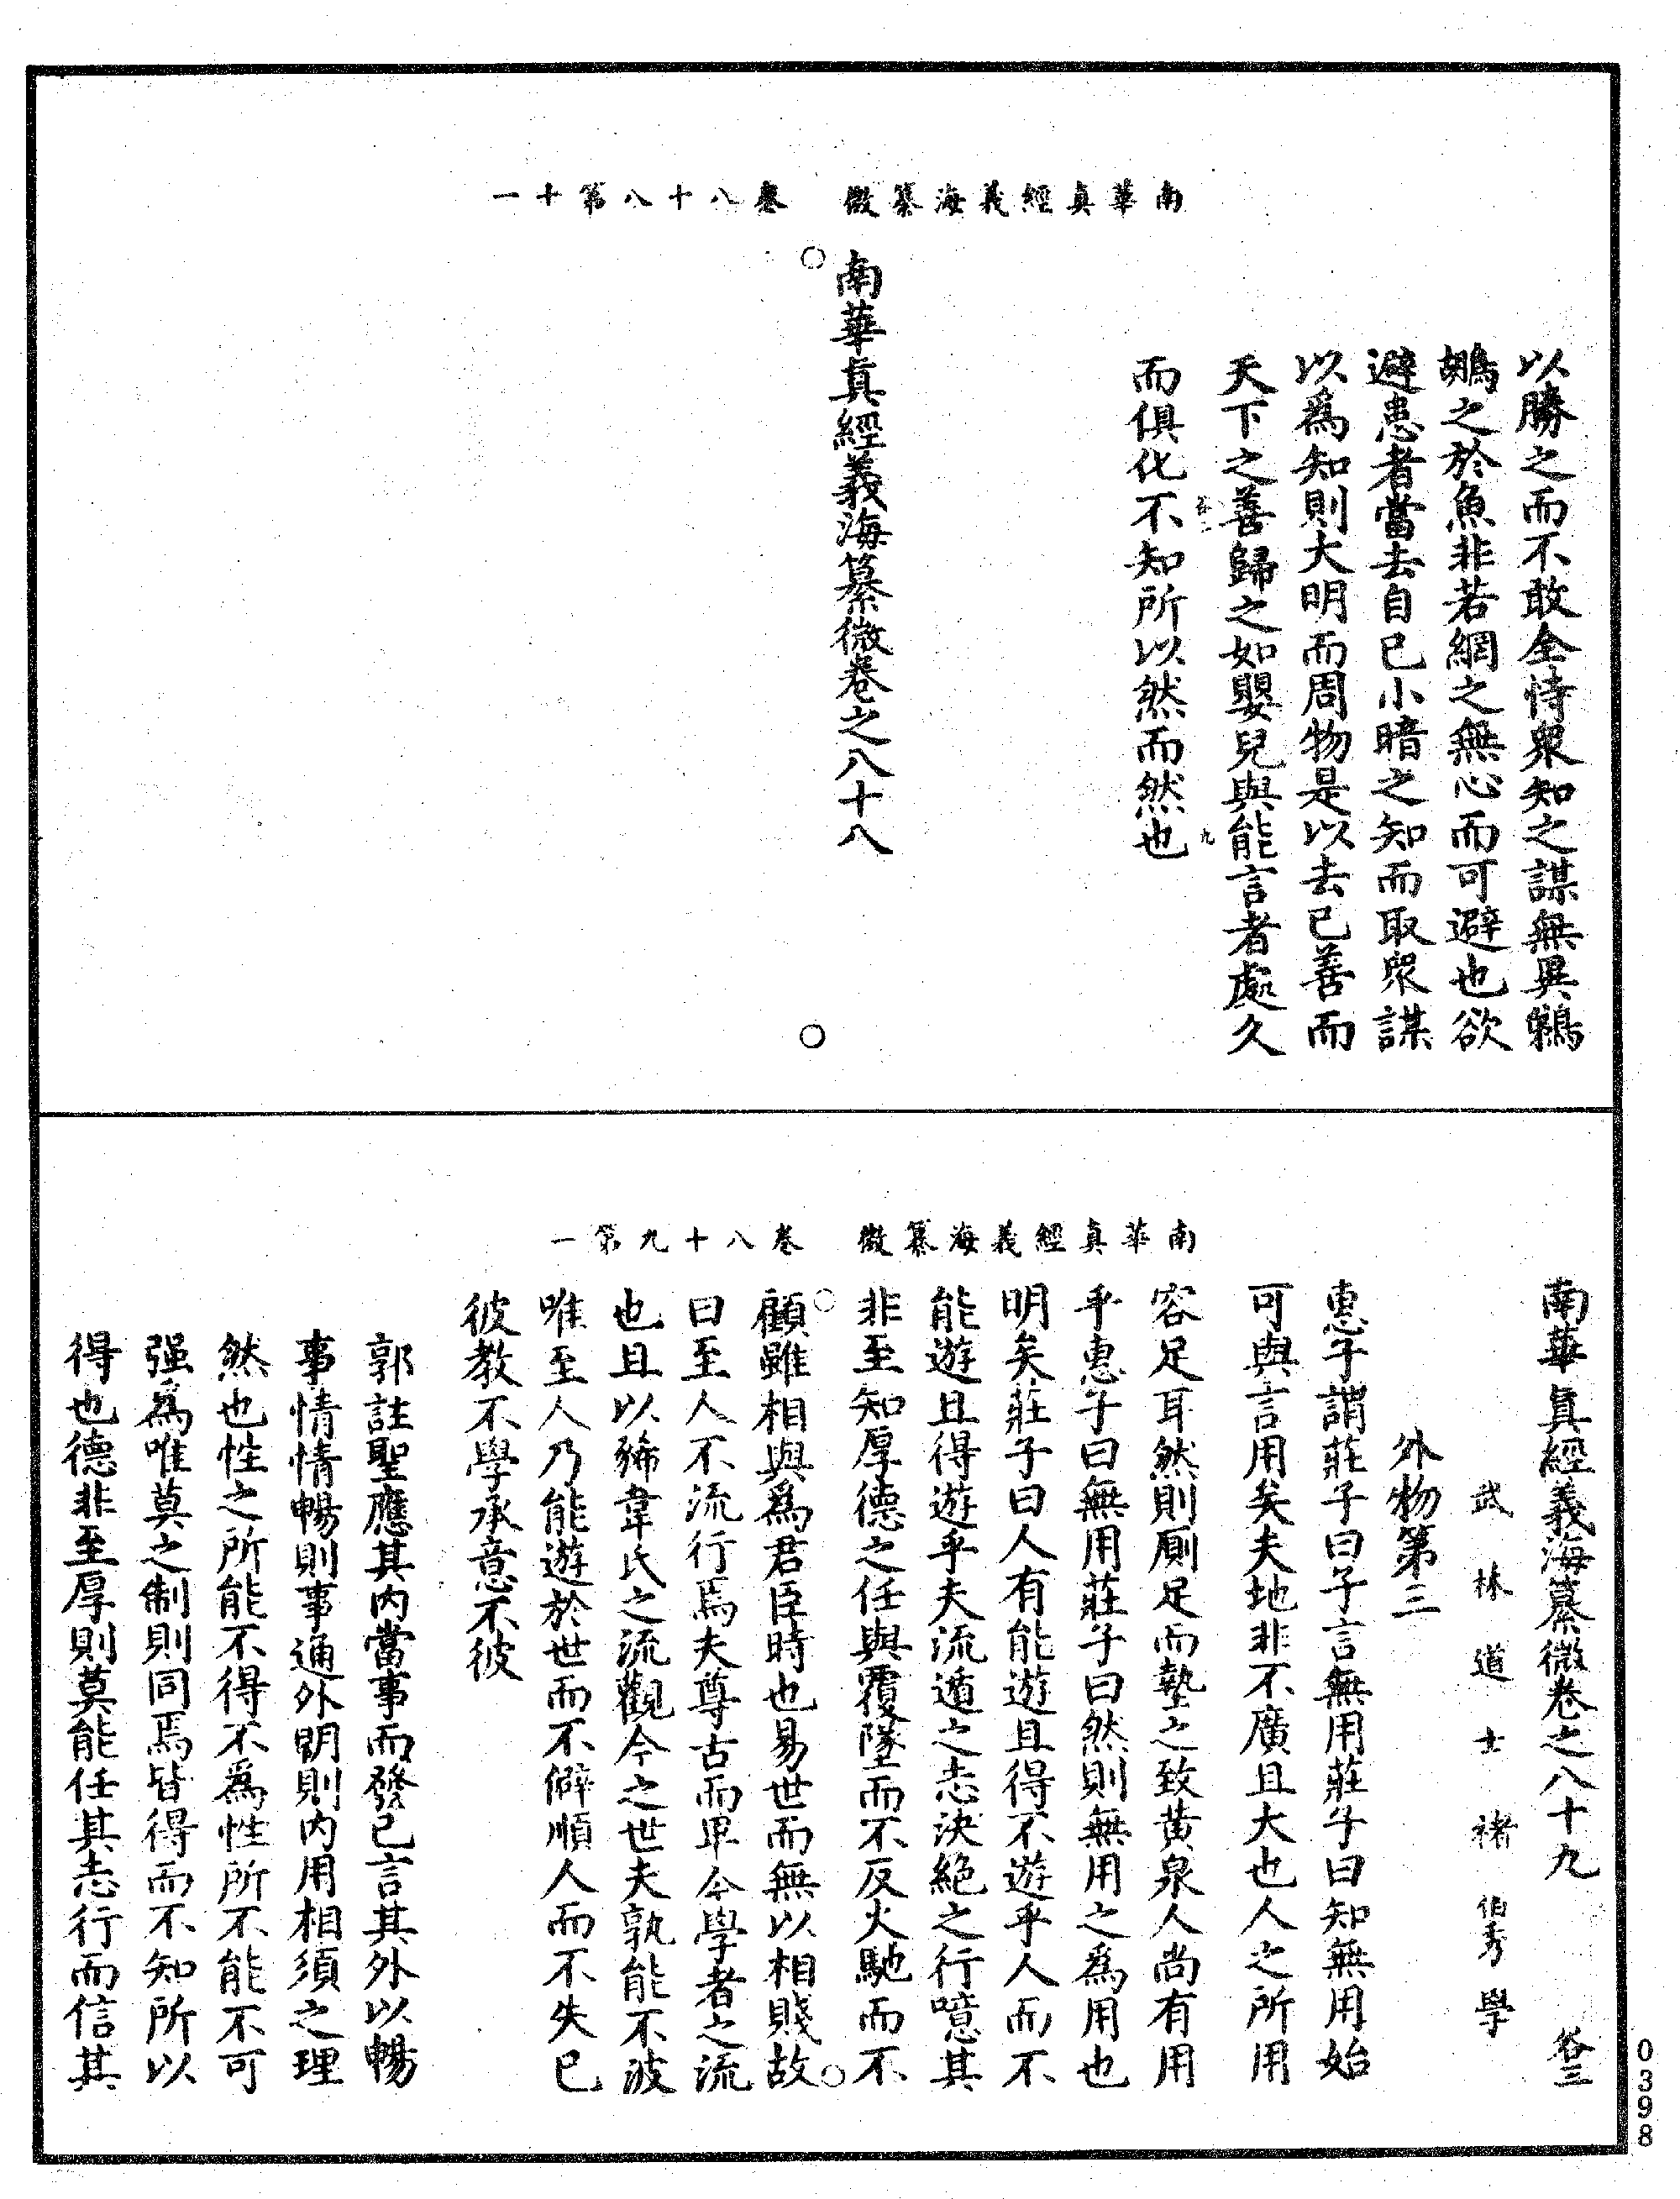 南華真經義海纂微　卷八十八第十一
以勝之而不敢全恃衆知之謀無異鵜
鶘之於魚非若網之無心而可避也欲
避患者當去自己小暗之知而取衆謀
以爲知則大明而周物是以去已善而
天下之善歸之如嬰兒與能言者處久
而俱化不知所以然而然也
九
南華真經義海纂微卷之八十八
南華真經義海纂微　卷八十九第一
南華真經義海纂微卷之八十九
武林道士褚伯秀學
外物第三
惠子謂莊子曰子言無用莊子曰知無用始
可與言用矣夫地非不廣且大也人之所用
容足耳然則厠足而墊之致黃泉人尚有用
乎惠子曰無用莊子曰然則無用之爲用也
明矣莊子曰人有能遊且得不遊乎人而不
能遊且得遊乎夫流遁之志決絕之行噫其
非至知厚德之任與覆墜而不反火馳而不
顧雖相與爲君臣時也易世而無以相賤故
曰至人不流行焉夫尊古而卑今學者之流
也且以狶韋氏之流觀今之世夫孰能不波
唯至人乃能遊於世而不僻順人而不失已
彼教不學承意不彼
郭註聖應其内當事而發已言其外以暢
事情情暢則事通外明則内用相須之理
然也性之所能不得不爲性所不能不可
强爲唯莫之制則同焉皆得而不知所以
得也德非至厚則莫能任其志行而信其
0398